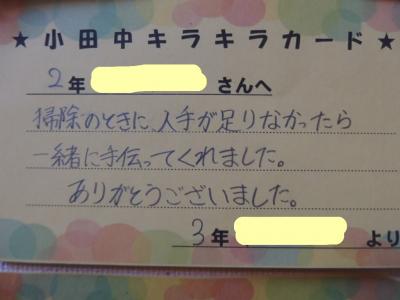 ★小田中キラキラカード★
2年 さんへ
掃除のときに、人手が足りなかったら
一緒に手伝ってくれました。
ありがとうございました。
3年 より